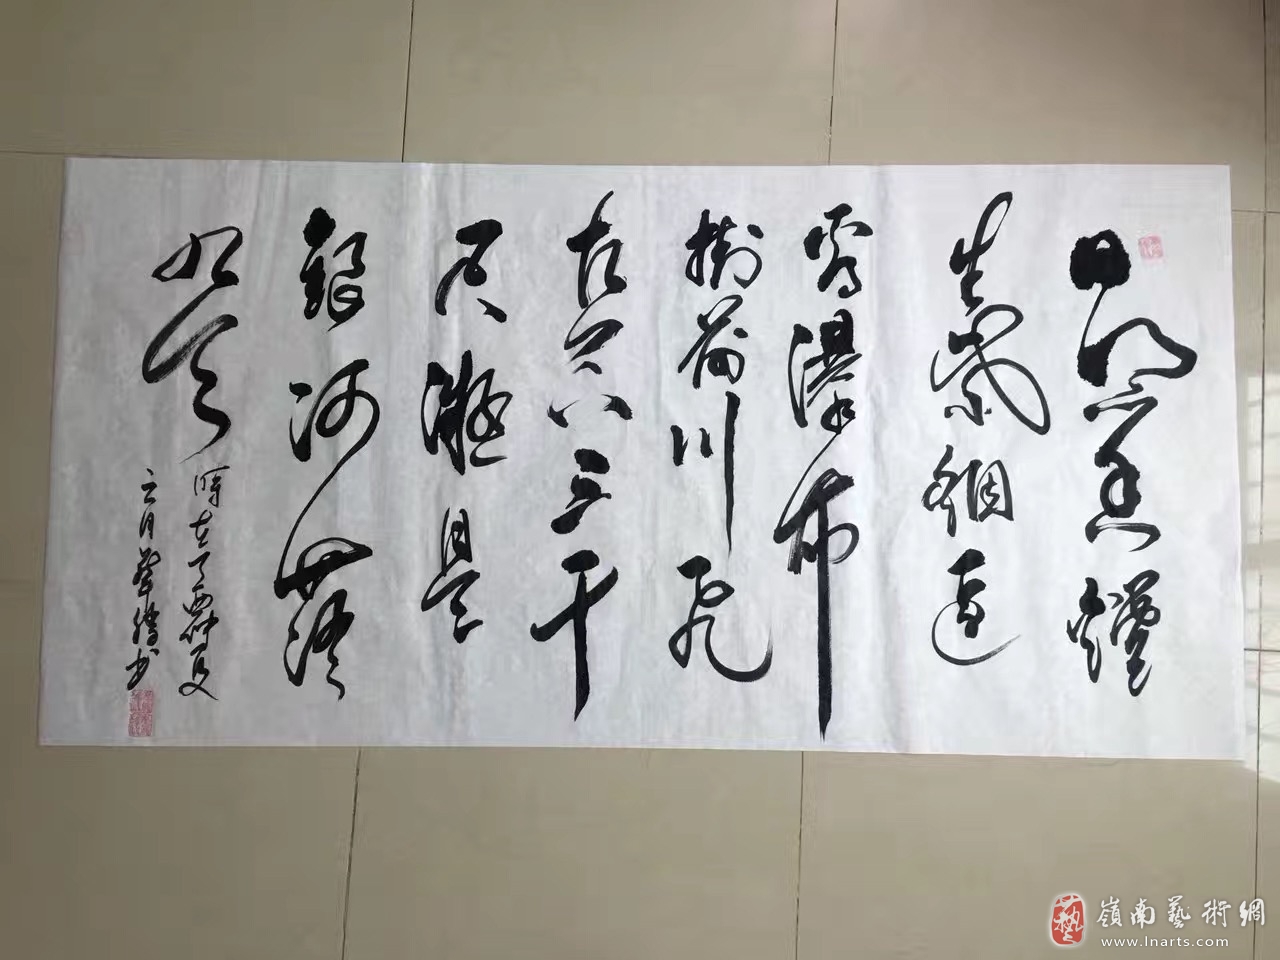 日照香爐
生紫烟遥
看瀑布
掛前川飛
流直下三千
尺疑是
銀河落
九天
時在丁酉仲夏
月 書
藝
嶺南藝術網
www.lnarts.com